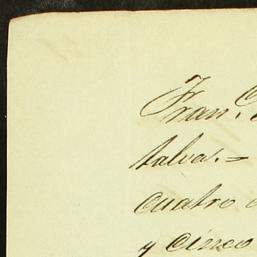 Fran.
talva.=
cuatro
y cinco